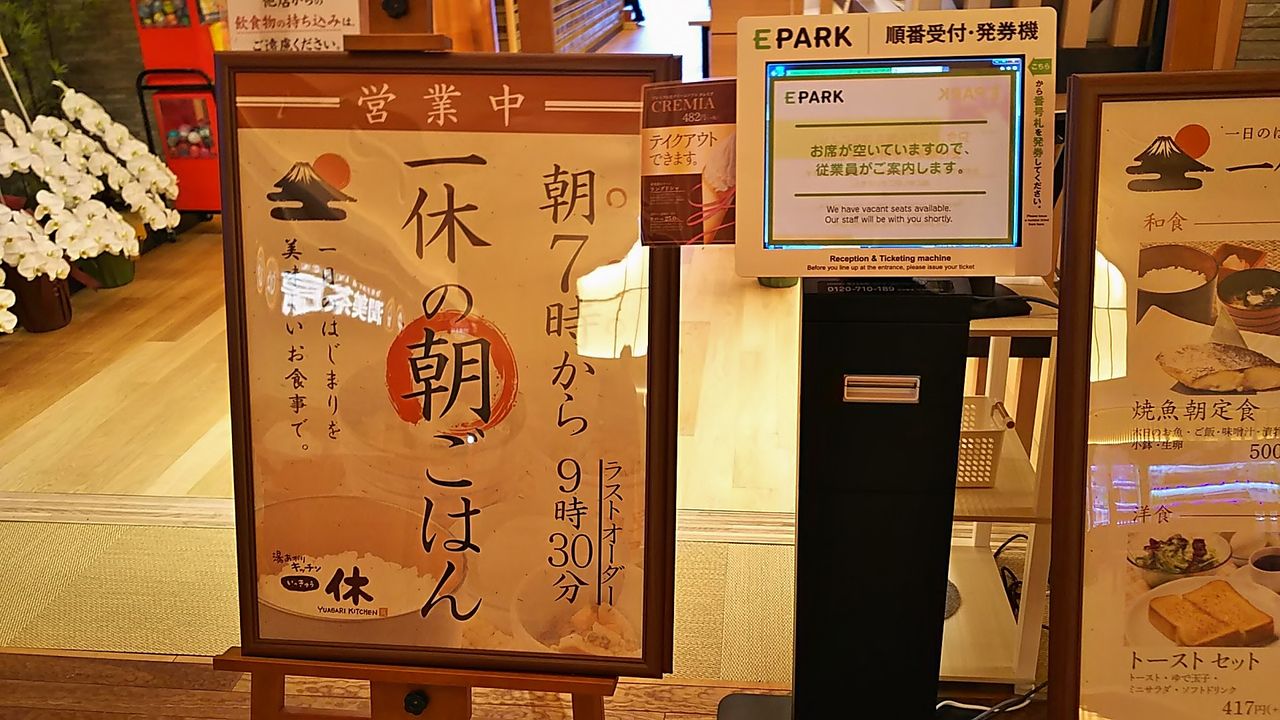 飲食物の持ち込みは、
ご遠慮ください。
営業中
朝7時から9時30分
ラストオーダー
一休の朝ごはん
一日のはじまりを
美味しいお食事で。
湯あがり
キッチン
いっきゅう
一休
YUAGARI KITCHEN
CREMIA
482円
テイクアウト
できます。
EPARK 順番受付・発券機
こちら
から番号札を発券してください。
EPARK
お席が空いていますので、
従業員がご案内します。
We have vacant seats available.
Our staff will be with you shortly.
Reception & Ticketing machine
Before you line up at the entrance, please issue your ticket
0120-710-189
一日のは
一
和食
焼魚朝定食
本日のお魚・ご飯・味噌汁・漬物
小鉢・生卵
500
洋食
トーストセット
トースト・ゆで玉子・
ミニサラダ・ソフトドリンク
417円(+